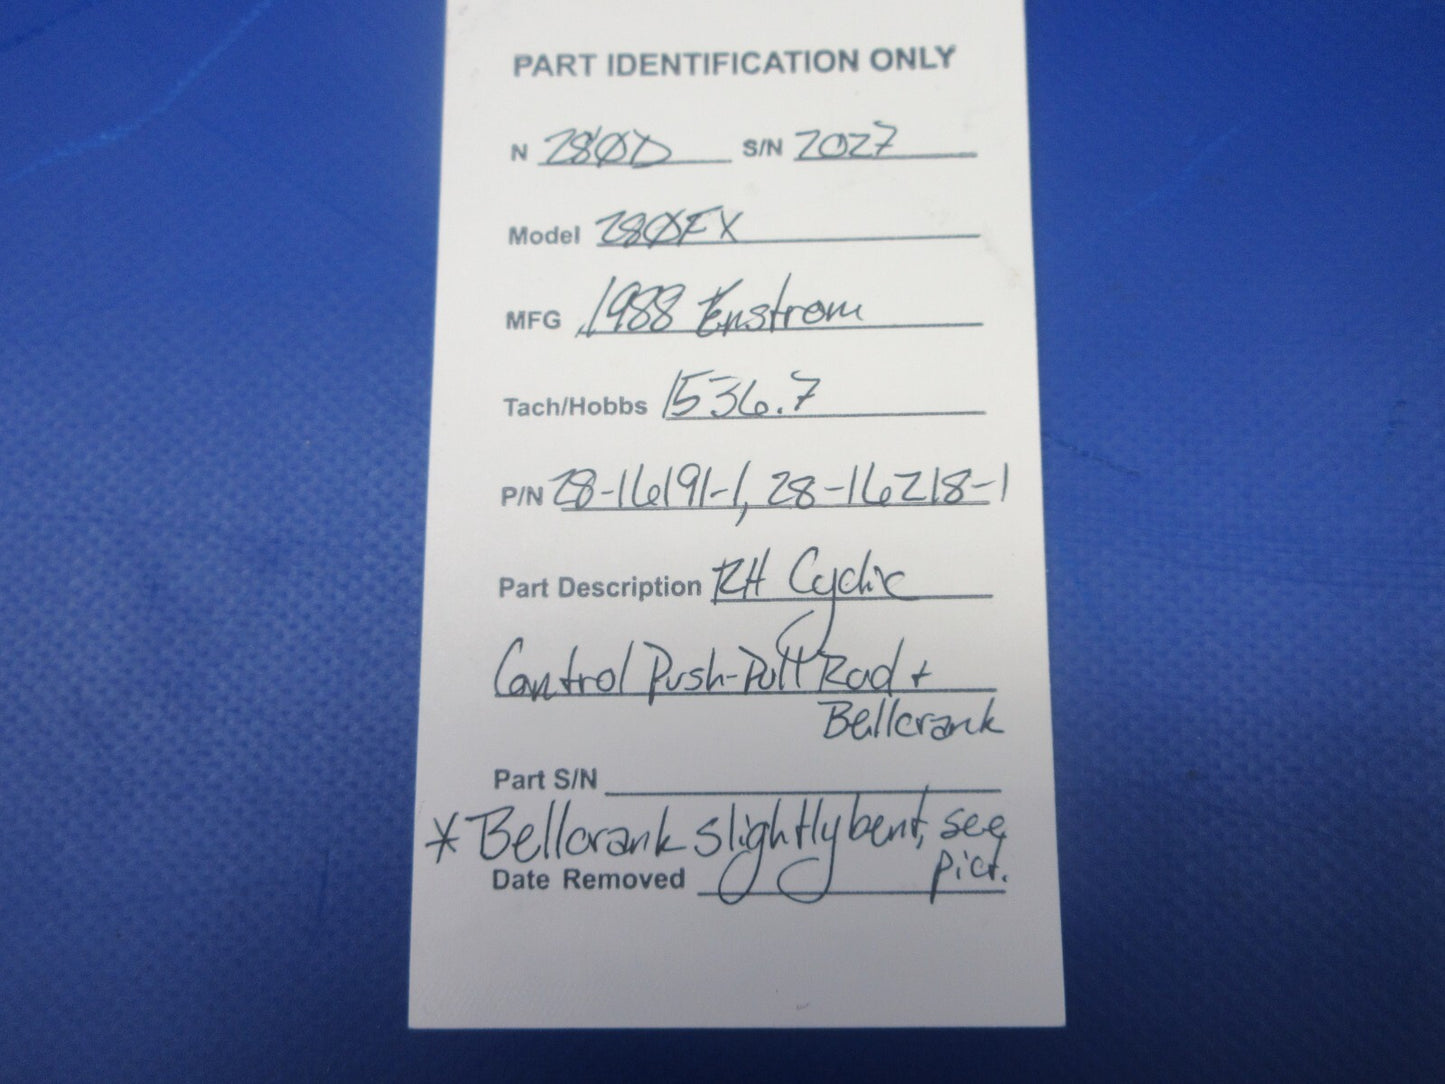 PART IDENTIFICATION ONLY
N 280D S/N 2027
Model 280FX
MFG 1988 Enstrom
Tach/Hobbs 1536.7
P/N 28-16191-1, 28-16218-1
Part Description RH Cyclic
Control Push-Pull Rod +
Bellcrank
Part S/N
* Bellcrank slightly bent, see
pict.
Date Removed